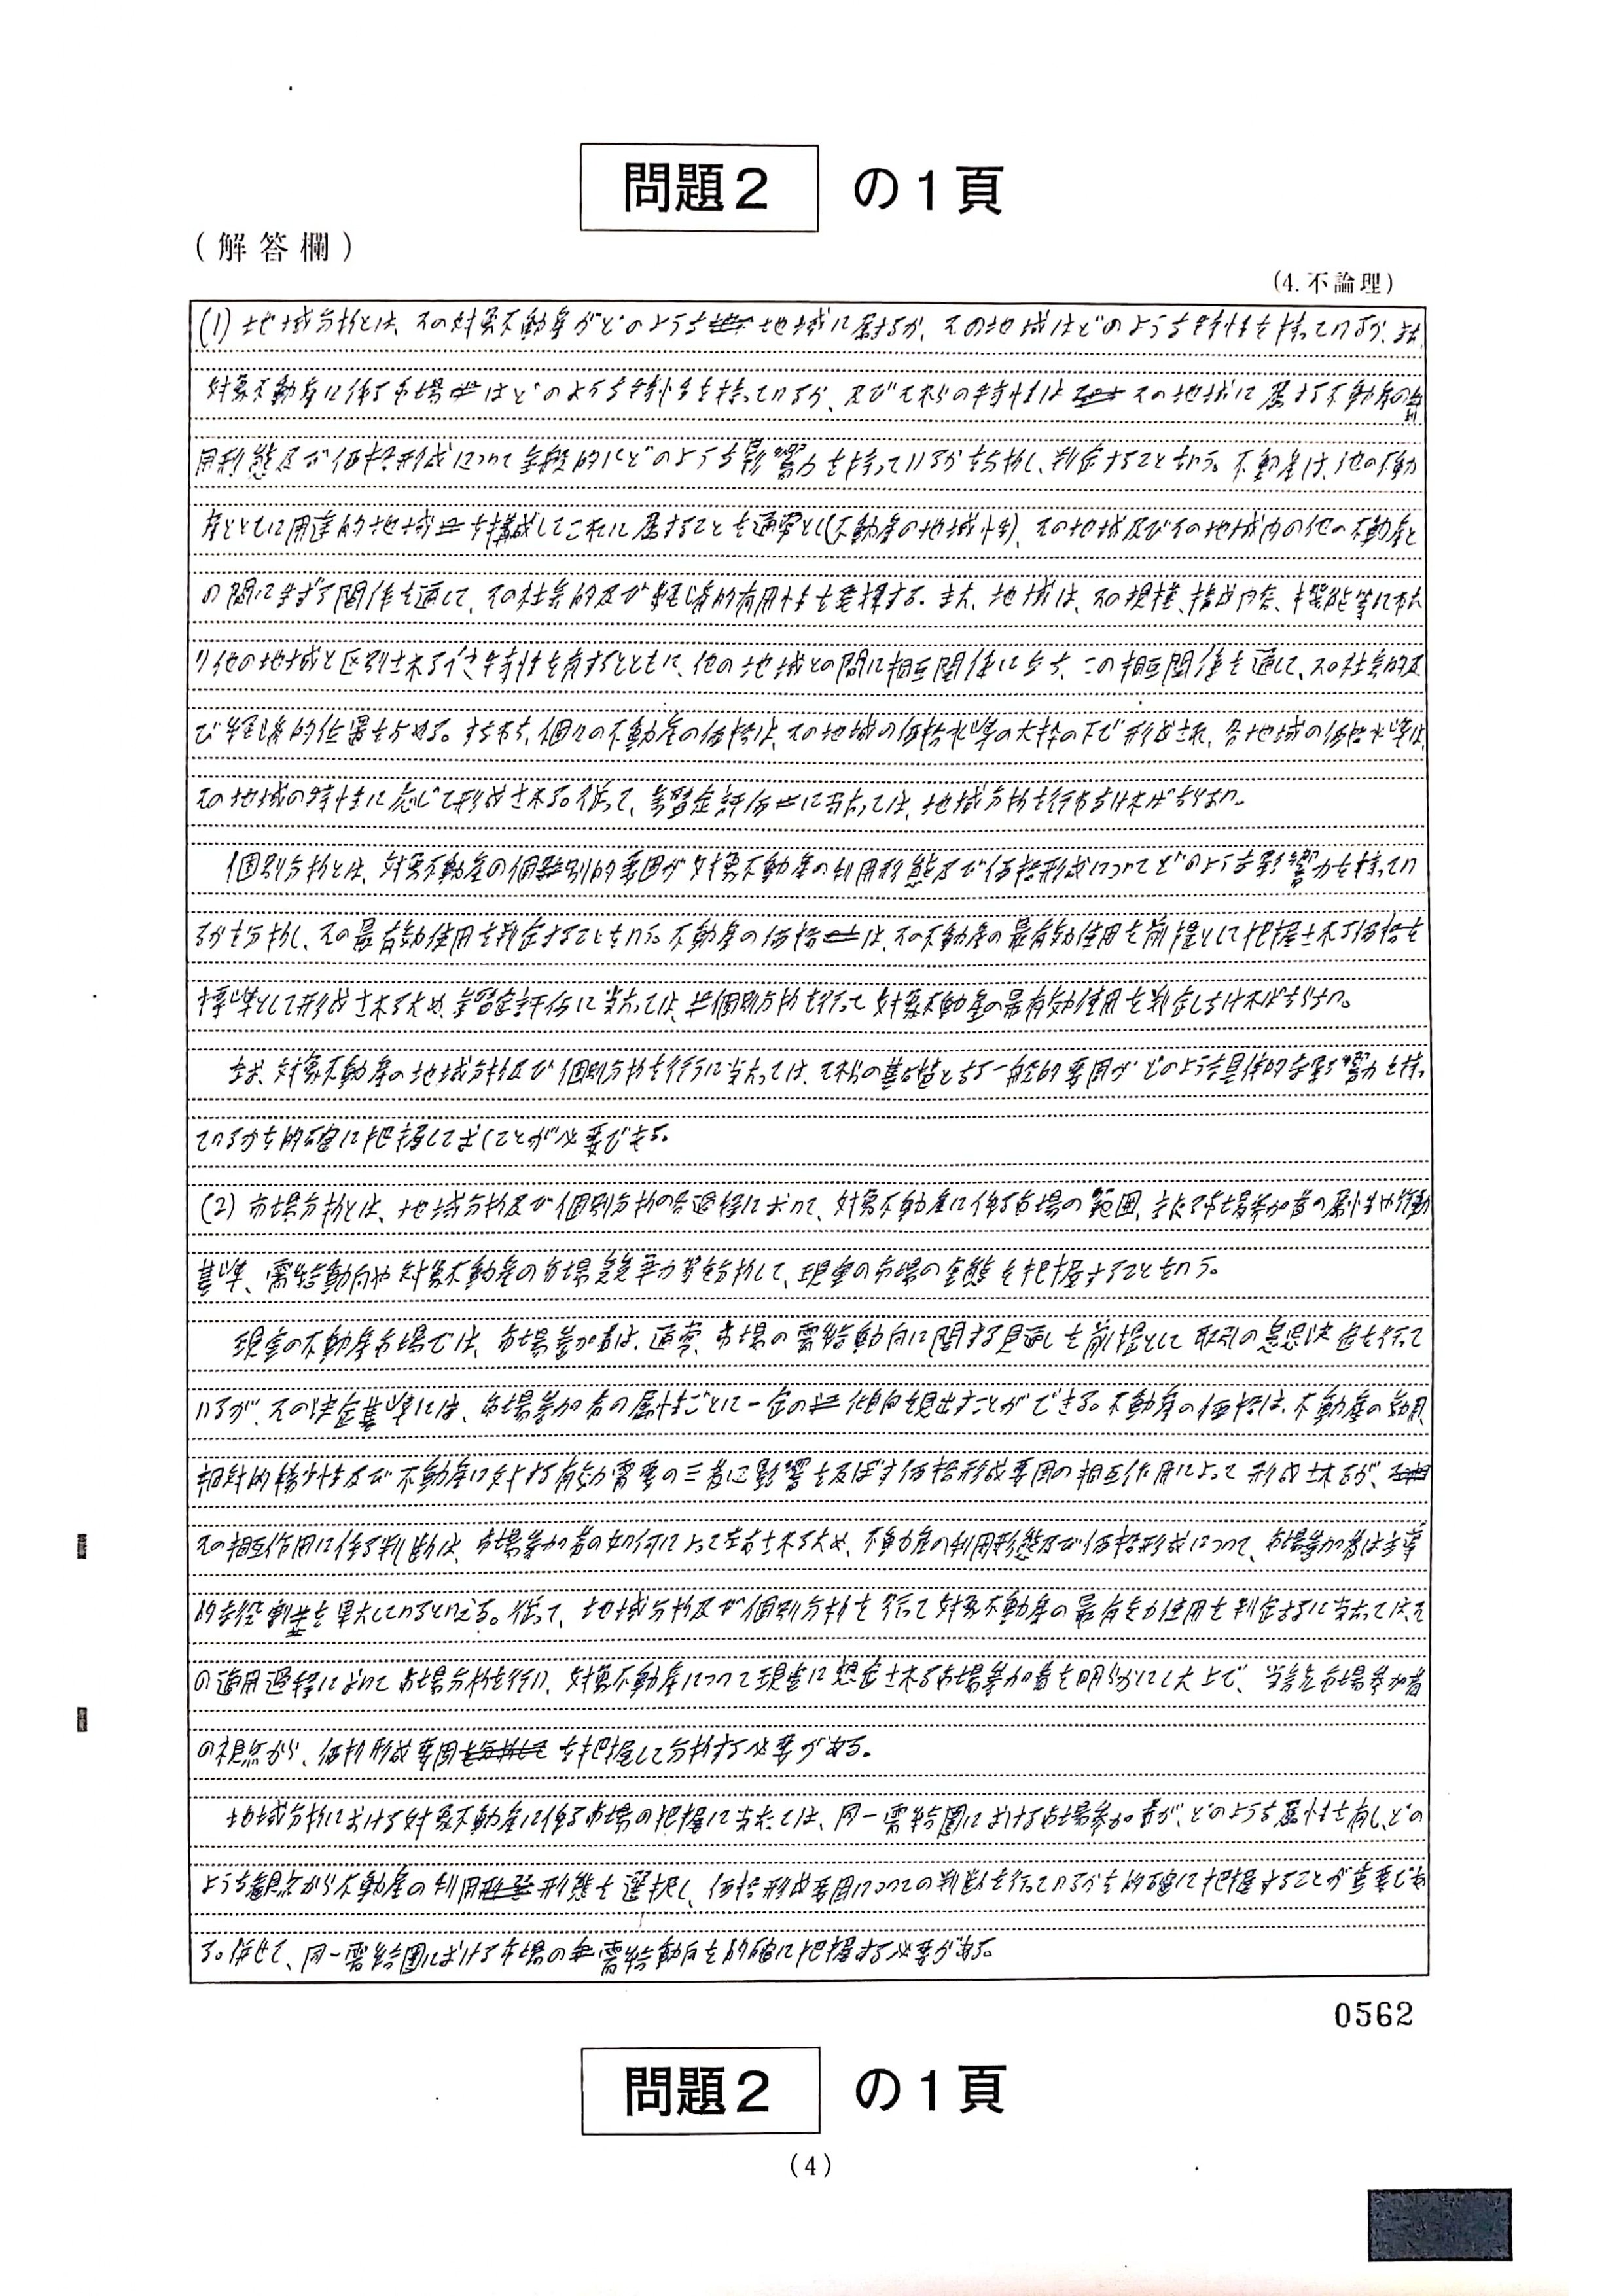 問題2 の1頁
(解答欄)
(4.不論理)
(1) 地域分析とは、その対象不動産がどのような地域に属するか、その地域はどのような特性を持っているか、また
対象不動産に係る市場はどのような特性を持っているか、及びそれらの特性はその地域に属する不動産の利
用形態及び価格形成について全般的にどのような影響力を持っているかを分析し、判定することをいう。不動産は、他の不動
産とともに用途的地域を構成してこれに属することを通常とし(不動産の地域性)、その地域及びその地域内の他の不動産と
の間に生ずる関係を通じて、その社会的及び経済的有用性を発揮する。また、地域は、その規模、構成内容、機能等にわた
り他の地域と区別されるべき特性を有するとともに、他の地域との間に相互関係に立ち、この相互関係を通じて、その社会的及
び経済的位置を占める。すなわち、個々の不動産の価格は、その地域の価格水準の大枠の下で形成され、各地域の価格水準は、
その地域の特性に応じて形成される。従って、鑑定評価に当たっては、地域分析を行わなければならない。
個別分析とは、対象不動産の個別的要因が対象不動産の利用形態及び価格形成についてどのような影響力を持ってい
るかを分析し、その最有効使用を判定することをいう。不動産の価格は、その不動産の最有効使用を前提として把握される価格を
標準として形成されるため、鑑定評価に当たっては、個別分析を行って対象不動産の最有効使用を判定しなければならない。
なお、対象不動産の地域分析及び個別分析を行うに当たっては、それらの基礎となる一般的要因がどのような具体的な影響力を持っ
ているかを的確に把握しておくことが必要である。
(2) 市場分析とは、地域分析及び個別分析の各過程において、対象不動産に係る市場の範囲、主たる市場参加者の属性や行動
基準、需給動向や対象不動産の市場競争力等を分析して、現実の市場の実態を把握することをいう。
現実の不動産市場では、市場参加者は、通常、市場の需給動向に関する見通しを前提として取引の意思決定を行って
いるが、その決定基準には、市場参加者の属性ごとに一定の傾向を見出すことができる。不動産の価格は、不動産の効用、
相対的稀少性及び不動産に対する有効需要の三者に影響を及ぼす価格形成要因の相互作用によって形成されるが、
その相互作用に係る判断は、市場参加者の如何によって左右されるため、不動産の利用形態及び価格形成について、市場参加者は主導
的な役割を果たしているといえる。従って、地域分析及び個別分析を経て対象不動産の最有効使用を判定するに当たっては、そ
の適用過程において市場分析を行い、対象不動産について現実に想定される市場参加者を明らかにした上で、当該市場参加者
の視点から、価格形成要因を把握して分析する必要がある。
地域分析における対象不動産に係る市場の把握に当たっては、同一需給圏における市場参加者が、どのような属性を有し、どの
ような観点から不動産の利用形態を選択し、価格形成要因についての判断を行っているかを的確に把握することが重要であ
る。併せて、同一需給圏における市場の需給動向を的確に把握する必要がある。
0562
問題2 の1頁
(4)